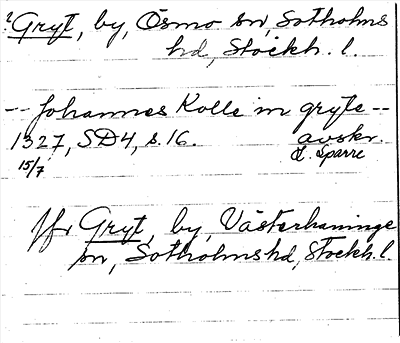 ? Gryt, by, Ösmo sn, Sotholms
hd, Stockh. l.
-- Johannes Kolle in gryte --
1327, SD4, s. 16. avskr.
15/7 E. Sparre
Jfr Gryt, by, Västerhaninge
sn, Sotholms hd, Stockh. l.